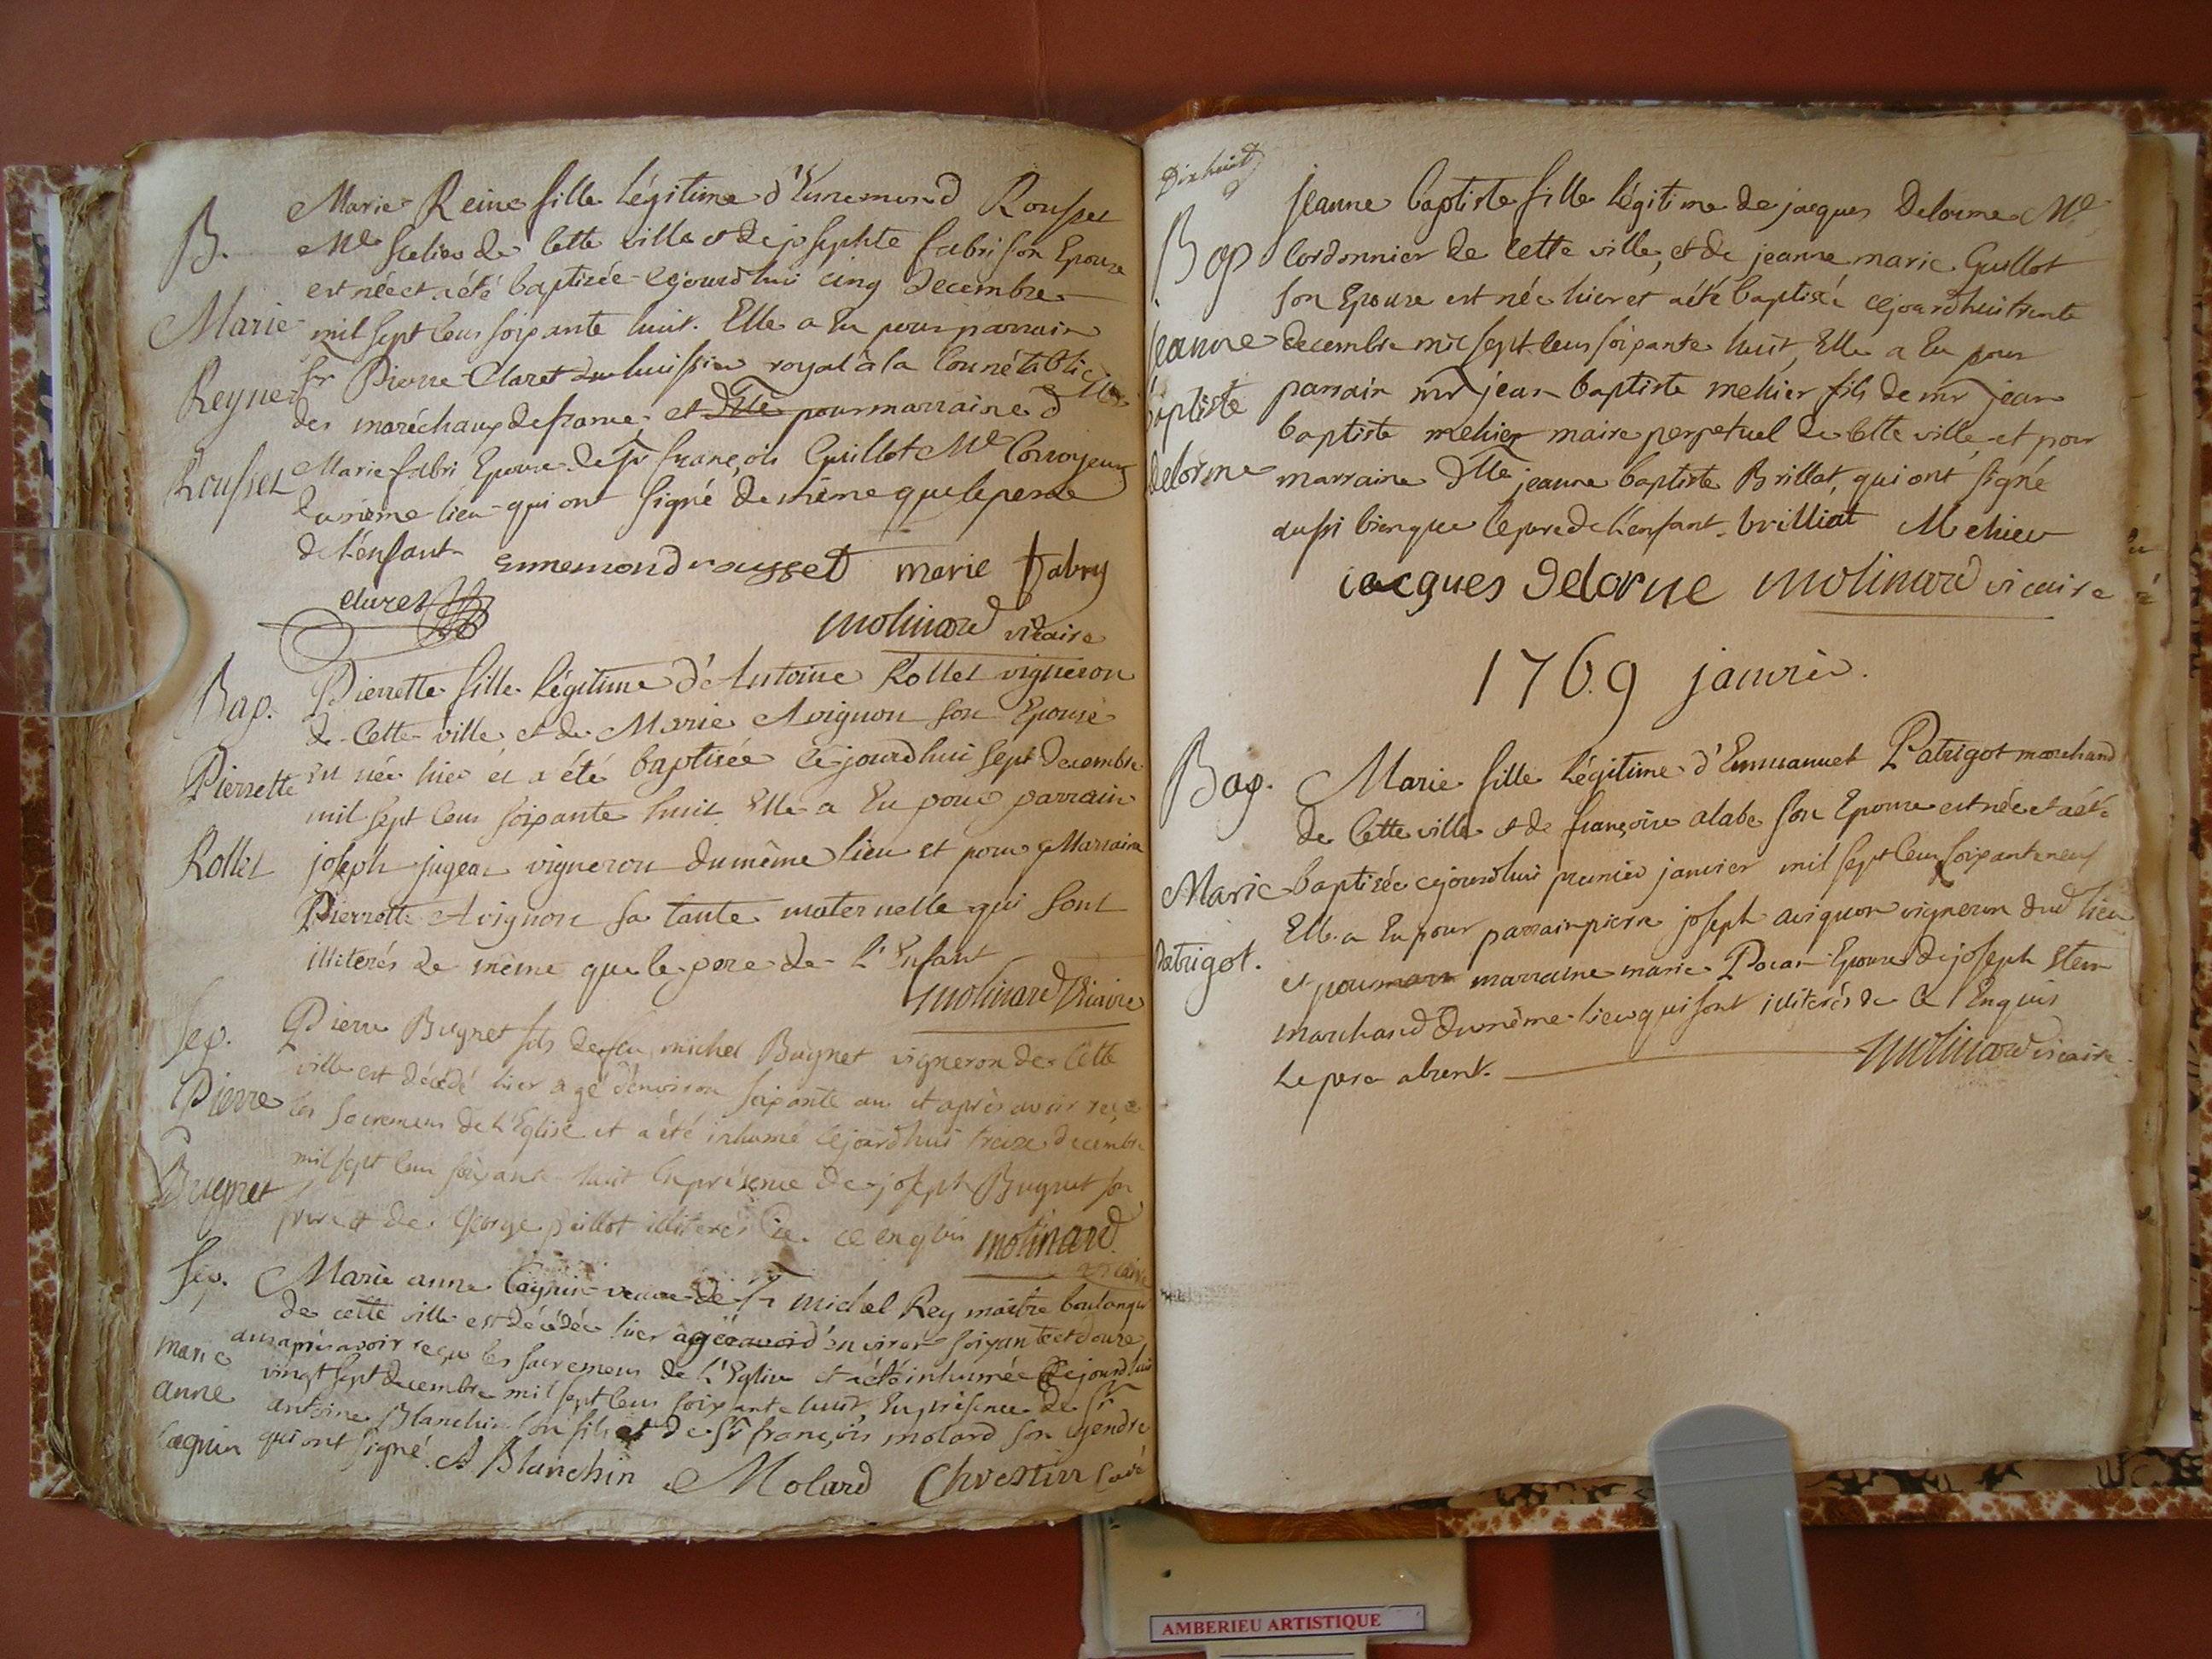 B.
Marie
Reyne
Rousset
Marie Reine fille légitime d'Ennemond Rousset
Me Sellier de Cette ville et de josephte fabri son Epouse
est née et a été baptizée cejourdhui cinq Decembre
mil sept Cens soixante huit. Elle a Eu pour parrain
sr Pierre Claret huissier royal à la Connétablie
des maréchaux de france, et dlle pour marraine d lle
Marie fabri Epouse de sr françois Guillot Me Corroyeur
du même lieu qui ont signé de même que le pere
de l'enfant ennemond rousset marie fabry
claret
molinard vicaire
Bap.
Pierrette
Rollet
Pierrette fille légitime d'Antoine Rollet vigneron
de Cette ville et de Marie Avignon son Epouse
est née hier et a été baptisée Cejourdhui sept Decembre
mil sept Cens soixante huit Elle a Eu pour parrain
joseph jugeat vigneron du même lieu et pour Marraine
Pierrette Avignon sa tante maternelle qui sont
illiterés de même que le pere de L'Enfant
molinard Vicaire
Sep.
Pierre
Bugnet
Pierre Bugnet fils de feu michel Bugnet vigneron de Cette
ville est décédé hier agé d'environ soixante ans et après avoir reçu
les sacremens de L'Eglise et a été inhumé Cejourdhui treize decembre
mil sept Cens soixante huit En présence de joseph Bugnet son
frere et de George paillot illiterés de ce enquis molinard
vicaire
Sep.
marie
anne
Cagnin
Marie anne Cagnin veuve de sr michel Rey maitre boulanger
de cette ville est décédée hier agée d'environ soixante et douze
ans après avoir reçu les sacremens de l'Eglise et a été inhumée Cejourdhui
vingt sept decembre mil sept Cens soixante huit En présence de sr
antoine Blanchin son fils et de sr françois molard son gendre
qui ont signé. A Blanchin Molard Chrestin Curé
Dixhuit
Bap
jeanne
baptiste
delorme
jeanne baptiste fille légitime de jacques Delorme Me
Cordonnier de Cette ville, et de jeanne marie Guillot
son Epouse est née hier et a été baptisée cejourdhui trente
decembre mil sept Cens soixante huit, Elle a Eu pour
parrain mr jean baptiste mehier fils de mr jean
baptiste mehier maire perpetuel de Cette ville, et pour
marraine dlle jeanne baptiste Brillat, qui ont signé
aussi bien que le pere de l'enfant. brilliat Mehier
iacques Delorme molinard vicaire
1769 janvier.
Bap.
Marie
Patrigot.
Marie fille légitime d'Emmanuel Patrigot marchand
de Cette ville et de françoise alabe son Epouse est née et a été
baptisée cejourdhui premier janvier mil sept Cens soixante neuf
Elle a Eu pour parrain pierre joseph avignon vigneron dud lieu
et pour marraine marie Pocar Epouse de joseph Stem
marchand du même lieu qui sont illiterés de Ce Enquis
Le pere absent. molinard vicaire
AMBERIEU ARTISTIQUE